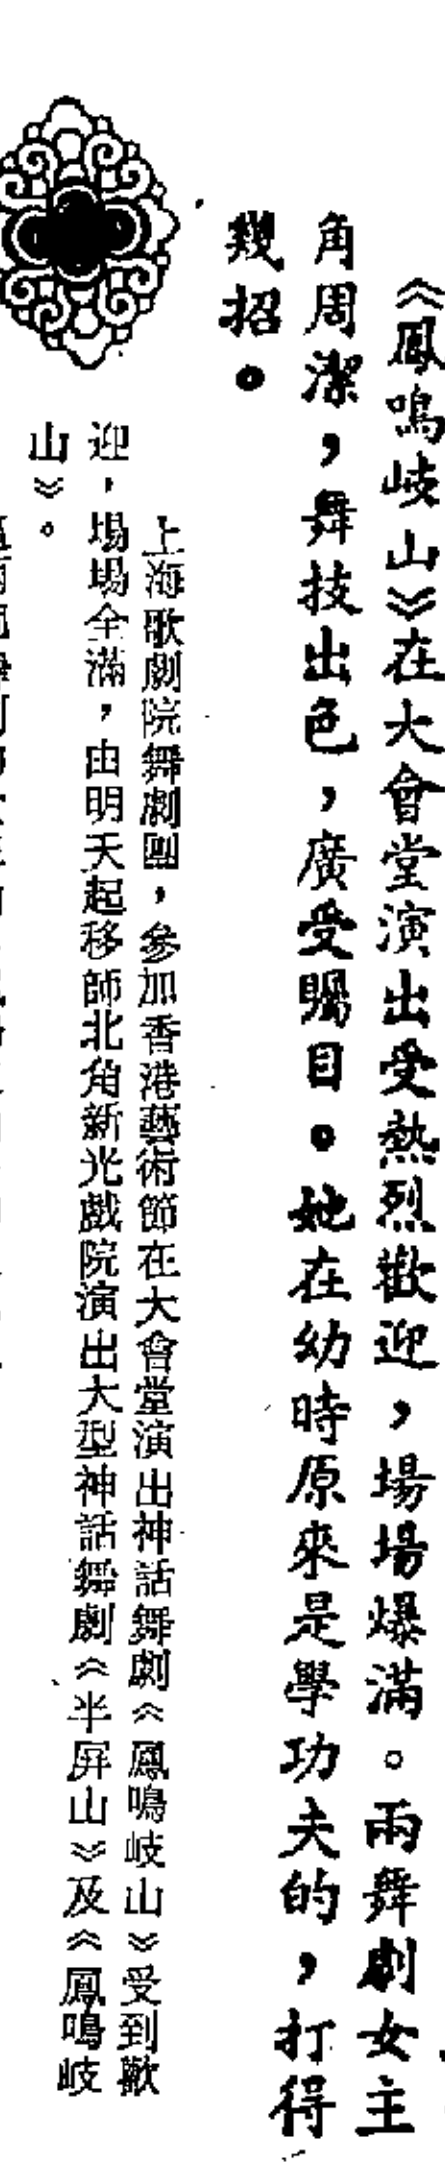 《鳳鳴岐山》在大會堂演出受熱烈歡迎，場場爆滿。兩舞劇女主
角周潔，舞技出色，廣受矚目。她在幼時原來是學功夫的，打得
幾招。
上海歌劇院舞劇團，參加香港藝術節在大會堂演出神話舞劇《鳳鳴岐山》受到歡
迎，場場全滿，由明天起移師北角新光戲院演出大型神話舞劇《半屏山》及《鳳鳴岐
山》。